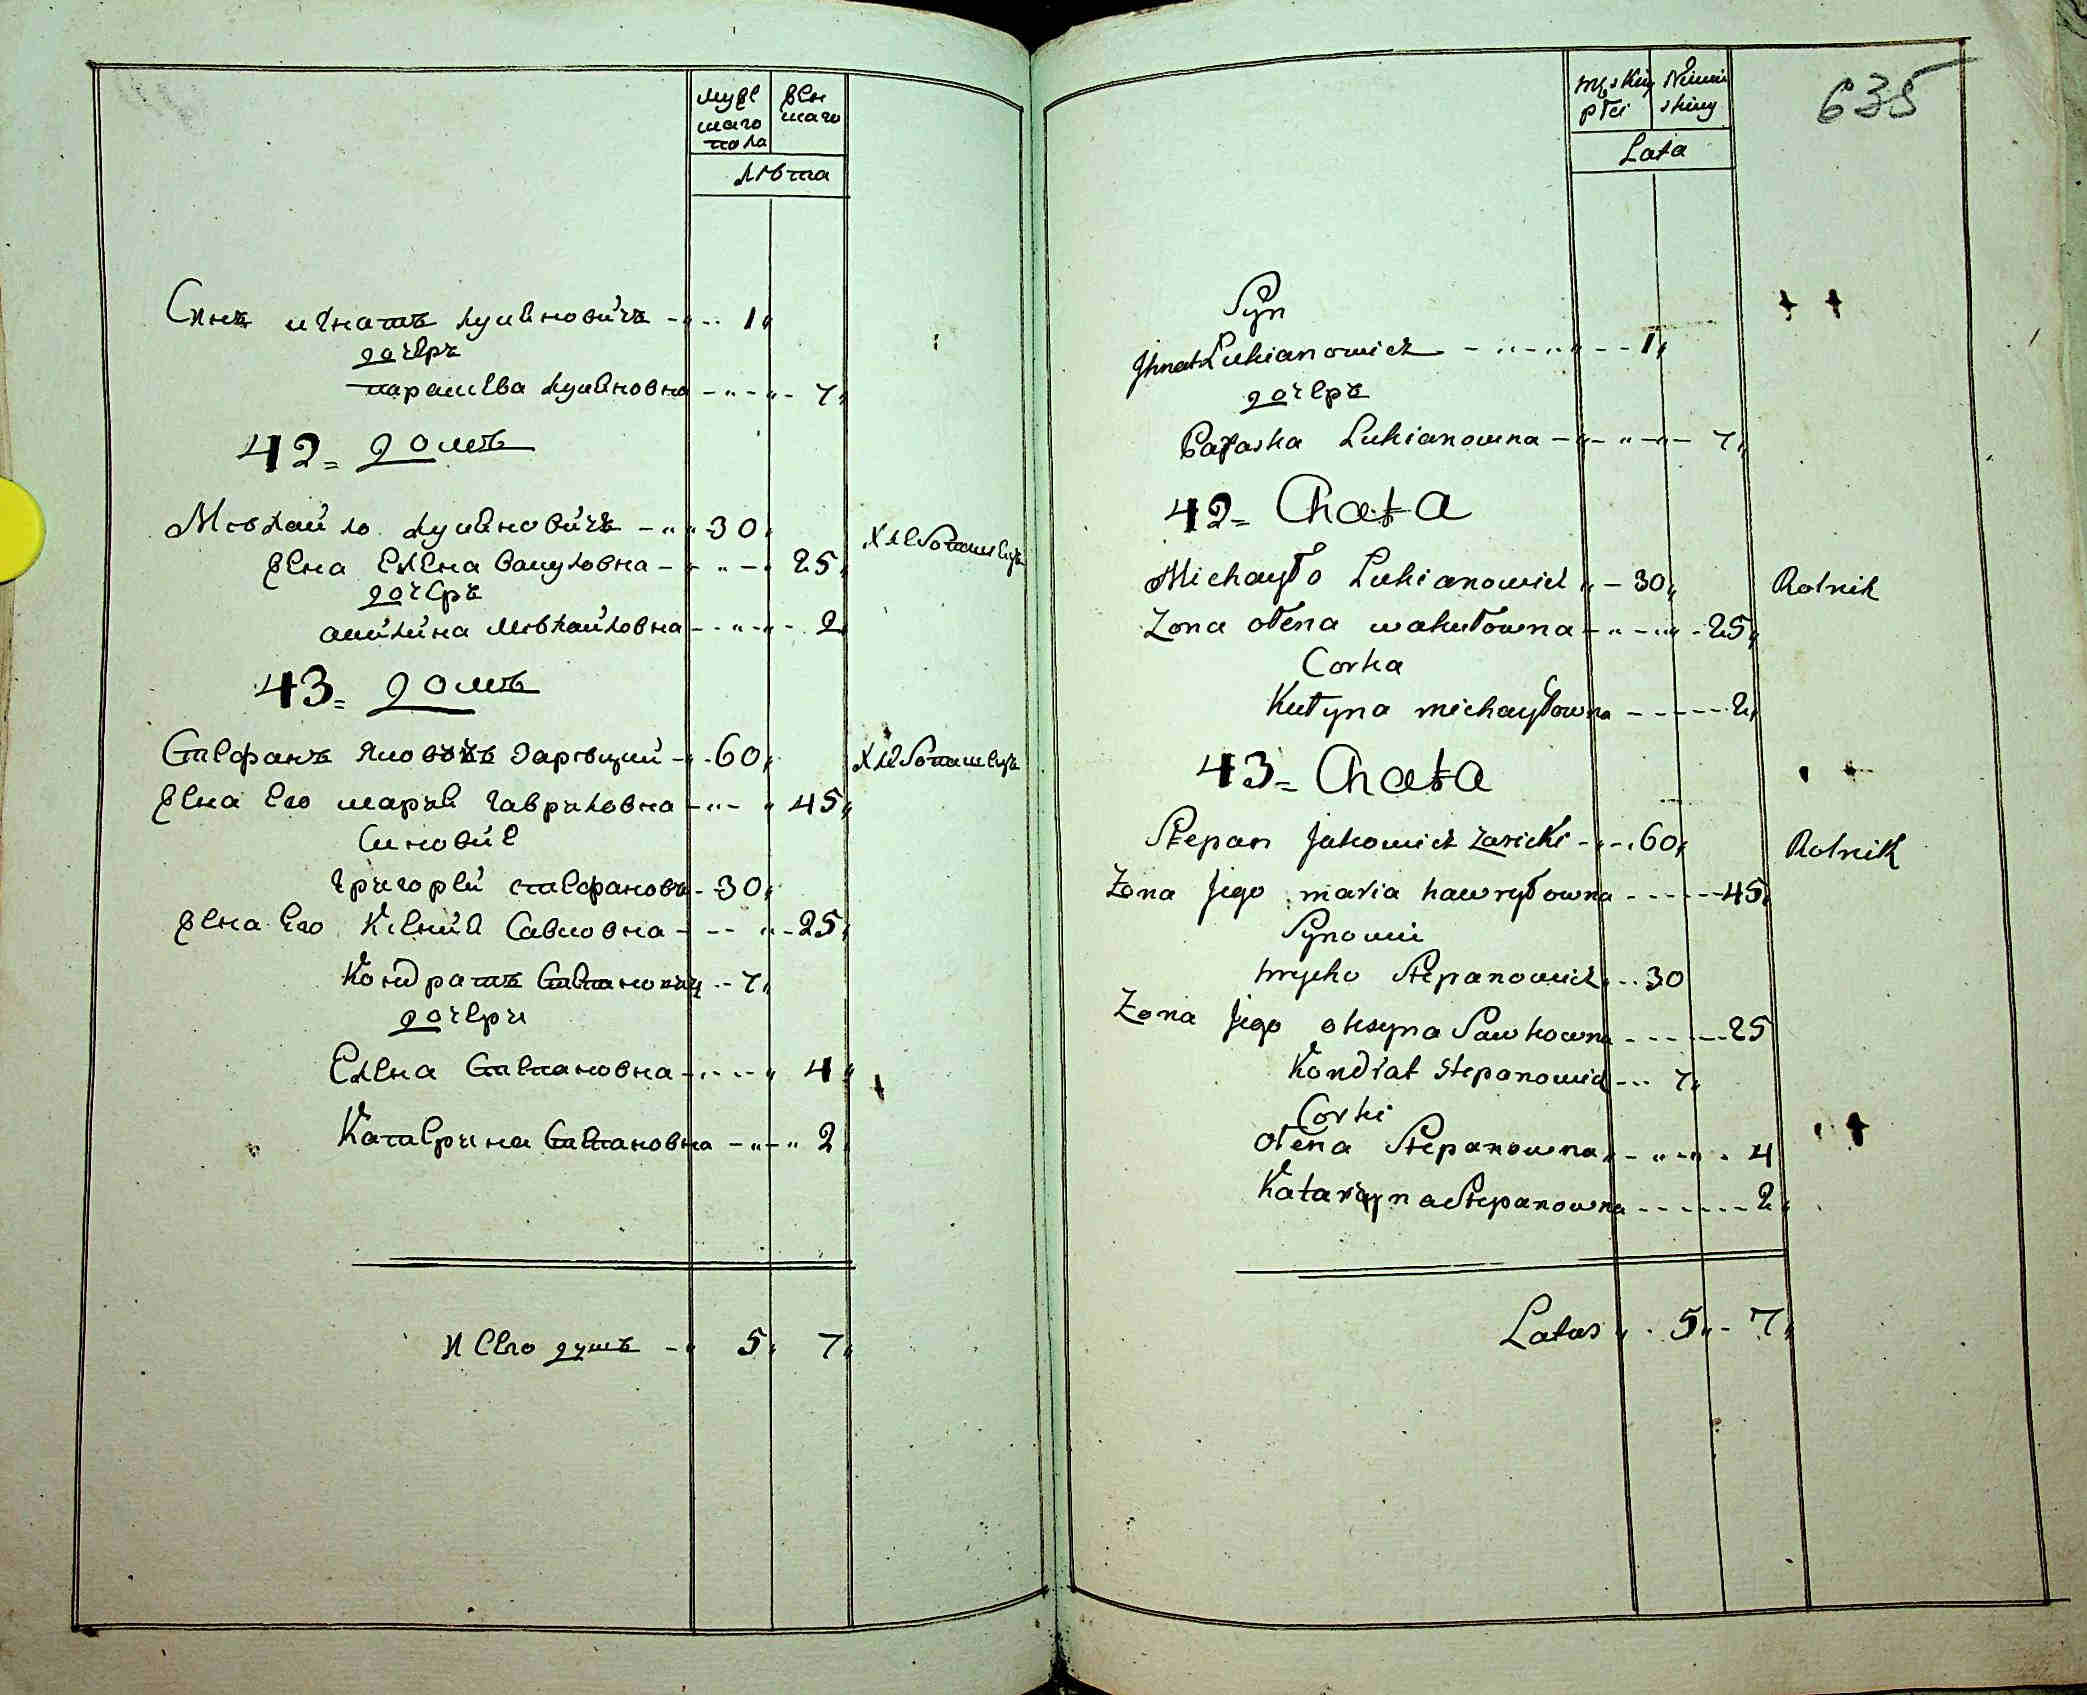 муже
скаго
пола
жен
скаго
лѣта
Сынъ игнатъ лукяновичъ - „ - - 1„
дочеръ
параскева лукяновна - „ - „ - 7„
42 = домъ
Михайло лукяновичъ - „ „ 30„ хлебопашецъ
жена Елена вакуловна - „ - „ 25„
дочеръ
акилина михайловна - - „ - „ - 2
43 = домъ
Стефанъ яковичъ Зарѣцкий - „ 60„ хлебопашецъ
жена его мария гавриловна - „ - „ 45„
Синовие
григорий стефановъ - 30„
жена его Ксения Савковна - - - „ - 25„
Кондратъ Степановичъ - - 7„
дочери
Елена Степановна - - - - „ 4„
Катерина Степановна - „ - „ 2
И всего душъ - „ 5„ 7„
635
męskiey
płci
Niewie
skiey
Lata
Syn
Jhnat Lukianowicz - „ - „ „ - - 1„
дочеръ
Paraska Lukianowna - „ - „ - „ - 7„
42 = Chata
Michayło Lukianowicz „ - 30„ Rolnik
Zona ołena wakułowna - „ - „ - 25„
Corka
Kułyna michayłowna - - - - - 2„
43 = Chata
Stepan Jakowicz Zaricki - „ - 60„ Rolnik
Zona Jego maria hawryłowna - - - - - 45„
Synowie
hryćko Stepanowicz „ - - 30
Zona Jego oksyna Sawkowna - - - - - 25
Kondrat Stepanowicz - - - 7„
Corki
ołena Stepanowna „ - „ - „ - 4
Katarzyna Stepanowna - - - - - - 2„
Latus „ - 5„ - 7„